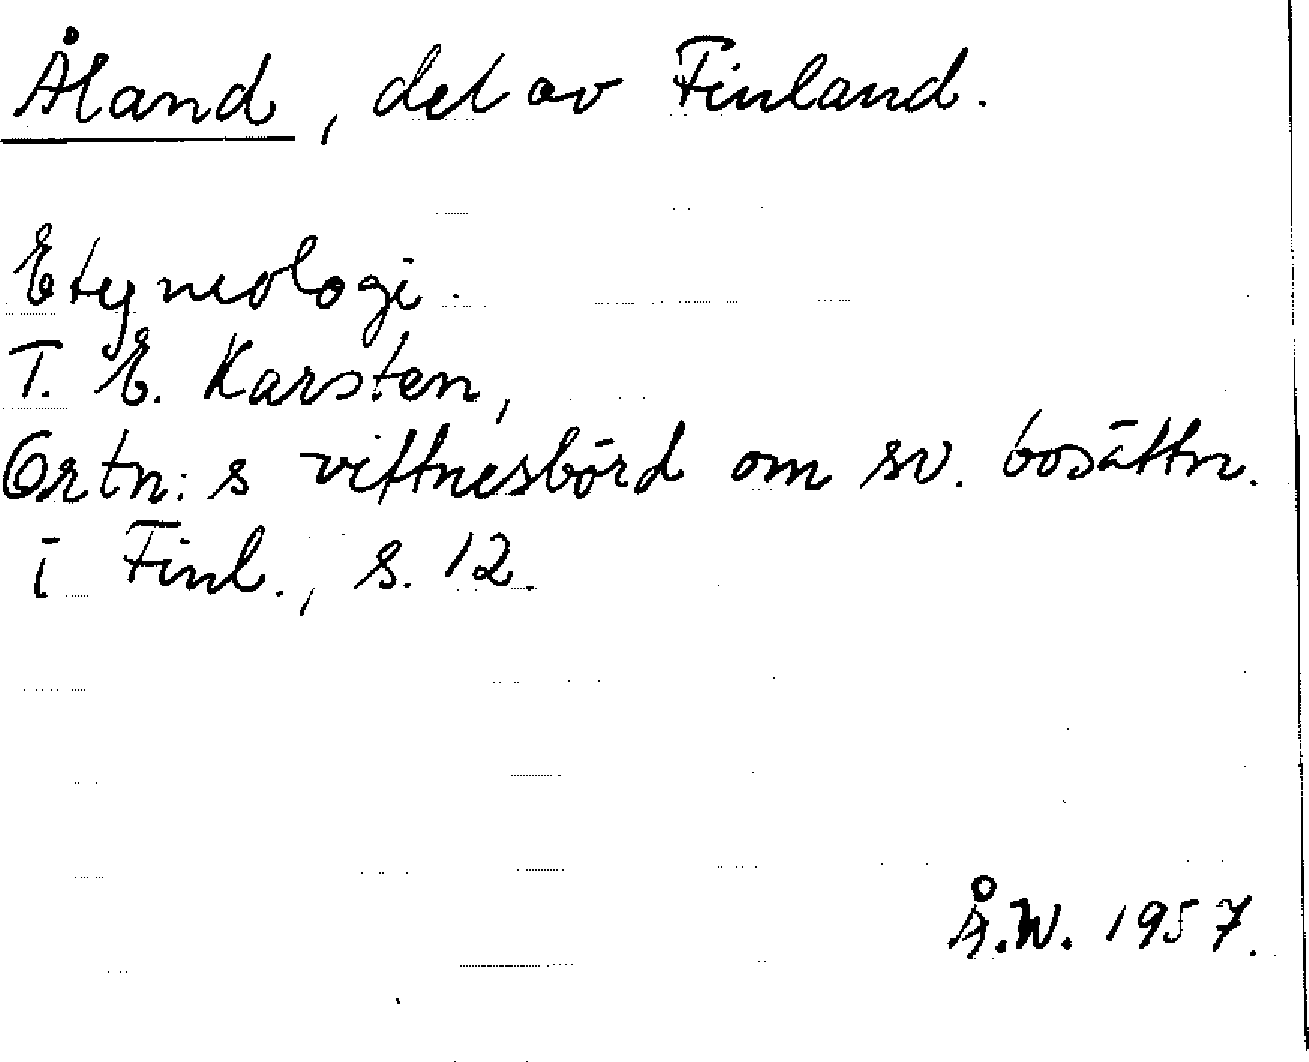 Åland, del av Finland.
Etymologi.
T. E. Karsten,
Ortn:s vittnesbörd om sv. bosättn.
i Finl., s. 12.
Å.W. 1957.